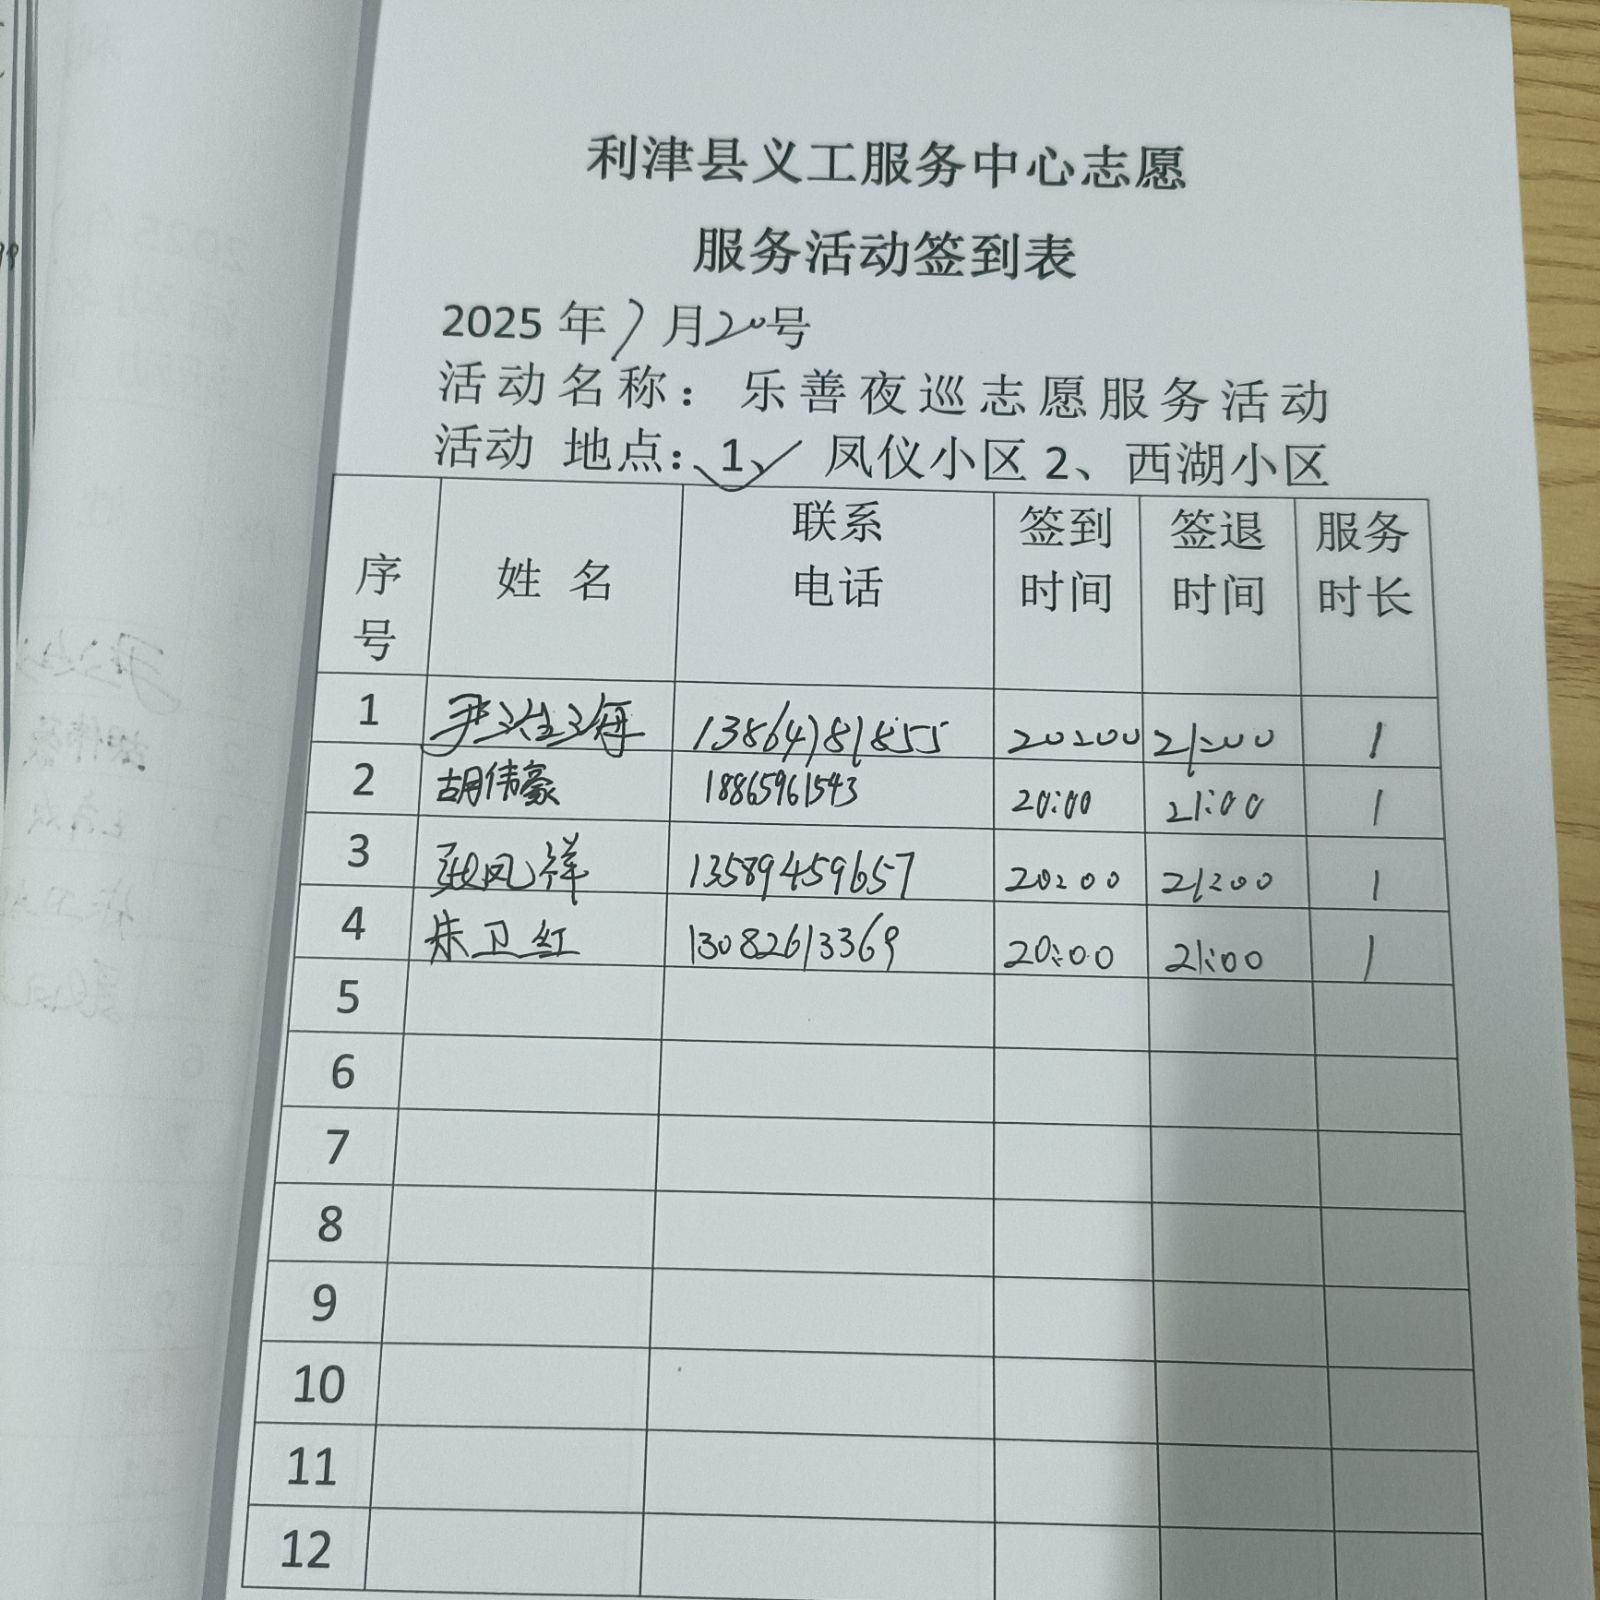 利津县义工服务中心志愿
服务活动签到表
2025年7月20号
活动名称：乐善夜巡志愿服务活动
活动 地点：1、✓ 凤仪小区2、西湖小区
序号 姓 名 联系电话 签到时间 签退时间 服务时长
1 尹 海 13864781855 20:00 21:00 1
2 胡伟豪 18865961543 20:00 21:00 1
3 张凤祥 13589459657 20:00 21:00 1
4 朱卫红 13082613369 20:00 21:00 1
5
6
7
8
9
10
11
12